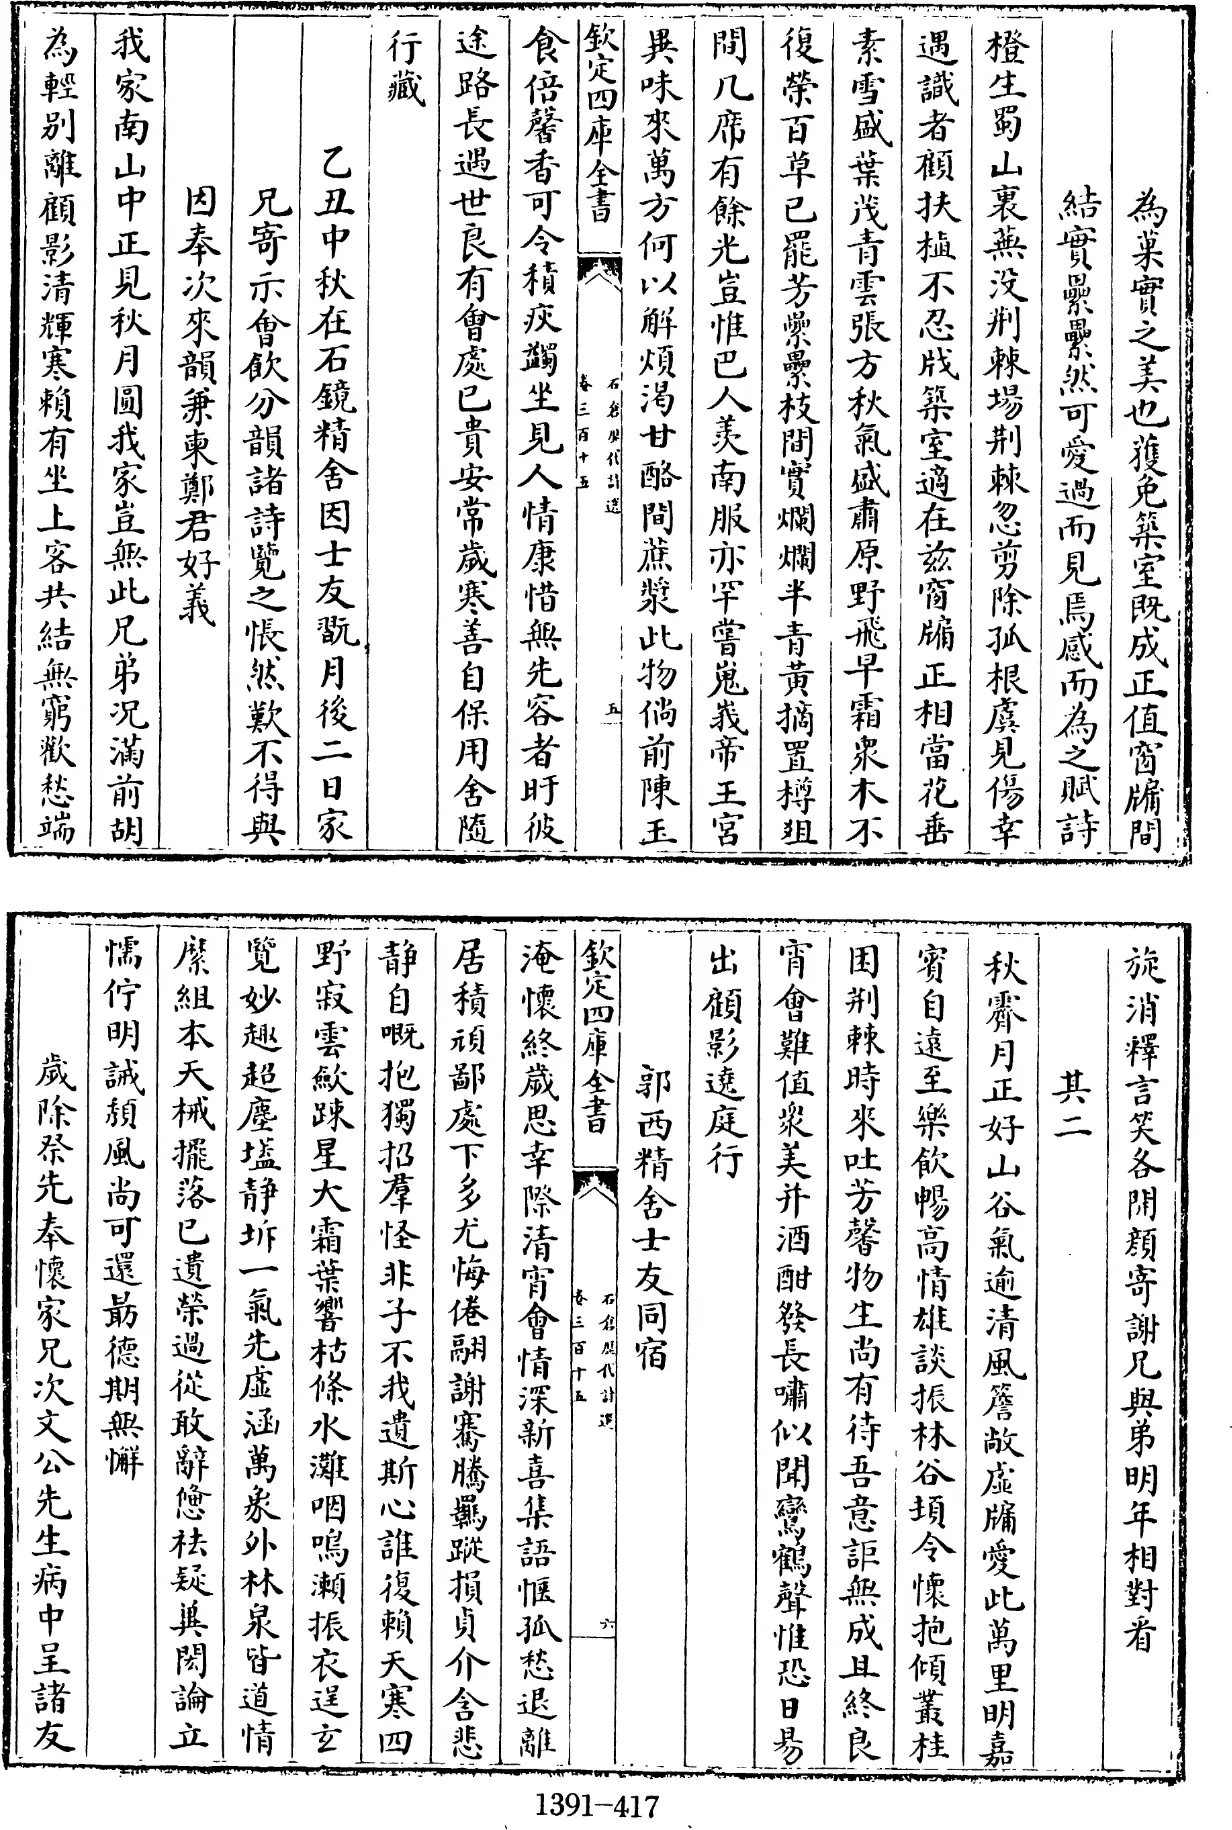 為菓實之美也獲免築室既成正值窗牖間
結實纍纍然可愛過而見焉感而為之賦詩
橙生蜀山裏蕪没荆棘場荆棘忽剪除孤根虞見傷幸
遇識者顧扶植不忍戕築室適在兹窗牖正相當花垂
素雪盛葉茂青雲張方秋氣盛肅原野飛早霜衆木不
復榮百草已罷芳纍纍枝間實爛爛半青黄摘置樽俎
間几席有餘光豈惟巴人羨南服亦罕嘗嵬峩帝王宮
異味來萬方何以解煩渇甘酪間蔗漿此物倘前陳玉
欽定四庫全書
石倉歷代詩選
卷三百十五
五
食倍馨香可令積疢蠲坐見人情康惜無先容者盱彼
途路長遇世良有會處已貴安常歲寒善自保用舍隨
行藏
乙丑中秋在石鏡精舍因士友翫月後二日家
兄寄示會飲分韻諸詩覽之悵然歎不得與
因奉次來韻兼柬鄭君好義
我家南山中正見秋月圓我家豈無此兄弟況滿前胡
為輕别離顧影清輝寒賴有坐上客共結無窮歡愁端
旋消釋言笑各開顔寄謝兄與弟明年相對看
其二
秋霽月正好山谷氣逾清風簷敞虛牖愛此萬里明嘉
賓自遠至樂飲暢高情雄談振林谷頃令懷抱傾叢桂
困荆棘時來吐芳馨物生尚有待吾意詎無成且終良
宵會難值衆美并酒酣發長嘯似聞鸞鶴聲惟恐日易
出顧影遶庭行
郭西精舍士友同宿
欽定四庫全書
石倉歷代詩選
卷三百十五
六
淹懷終歲思幸際清宵會情深新喜集語愜孤愁退離
居積頑鄙處下多尤悔倦翮謝騫騰羈蹤損貞介含悲
靜自嘅抱獨招羣怪非子不我遺斯心誰復賴天寒四
野寂雲歛踈星大霜葉響枯條水灘咽鳴瀨振衣逞玄
覽妙趣超塵壒靜坼一氣先虛涵萬象外林泉皆道情
縻組本天械擺落已遺榮過從敢辭憊袪疑兾閎論立
懦佇明誡頽風尚可還朂德期無懈
歲除祭先奉懷家兄次文公先生病中呈諸友
1391-417